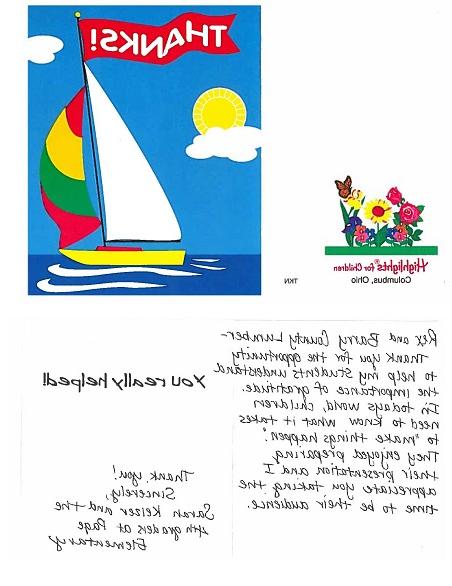 THANKS!
Highlights® for Children
Columbus, Ohio
TKN
Rex and Barry County Lumber-
Thank you for the opportunity
to help my students understand
the importance of gratitude.
In todays world, children
need to know what it takes
to "make" things happen.
They enjoyed preparing
their presentation and I
appreciate you taking the
time to be their audience.
You really helped!
Thank you!
Sincerely,
Sarah Keizer and the
4th graders at Page
Elementary